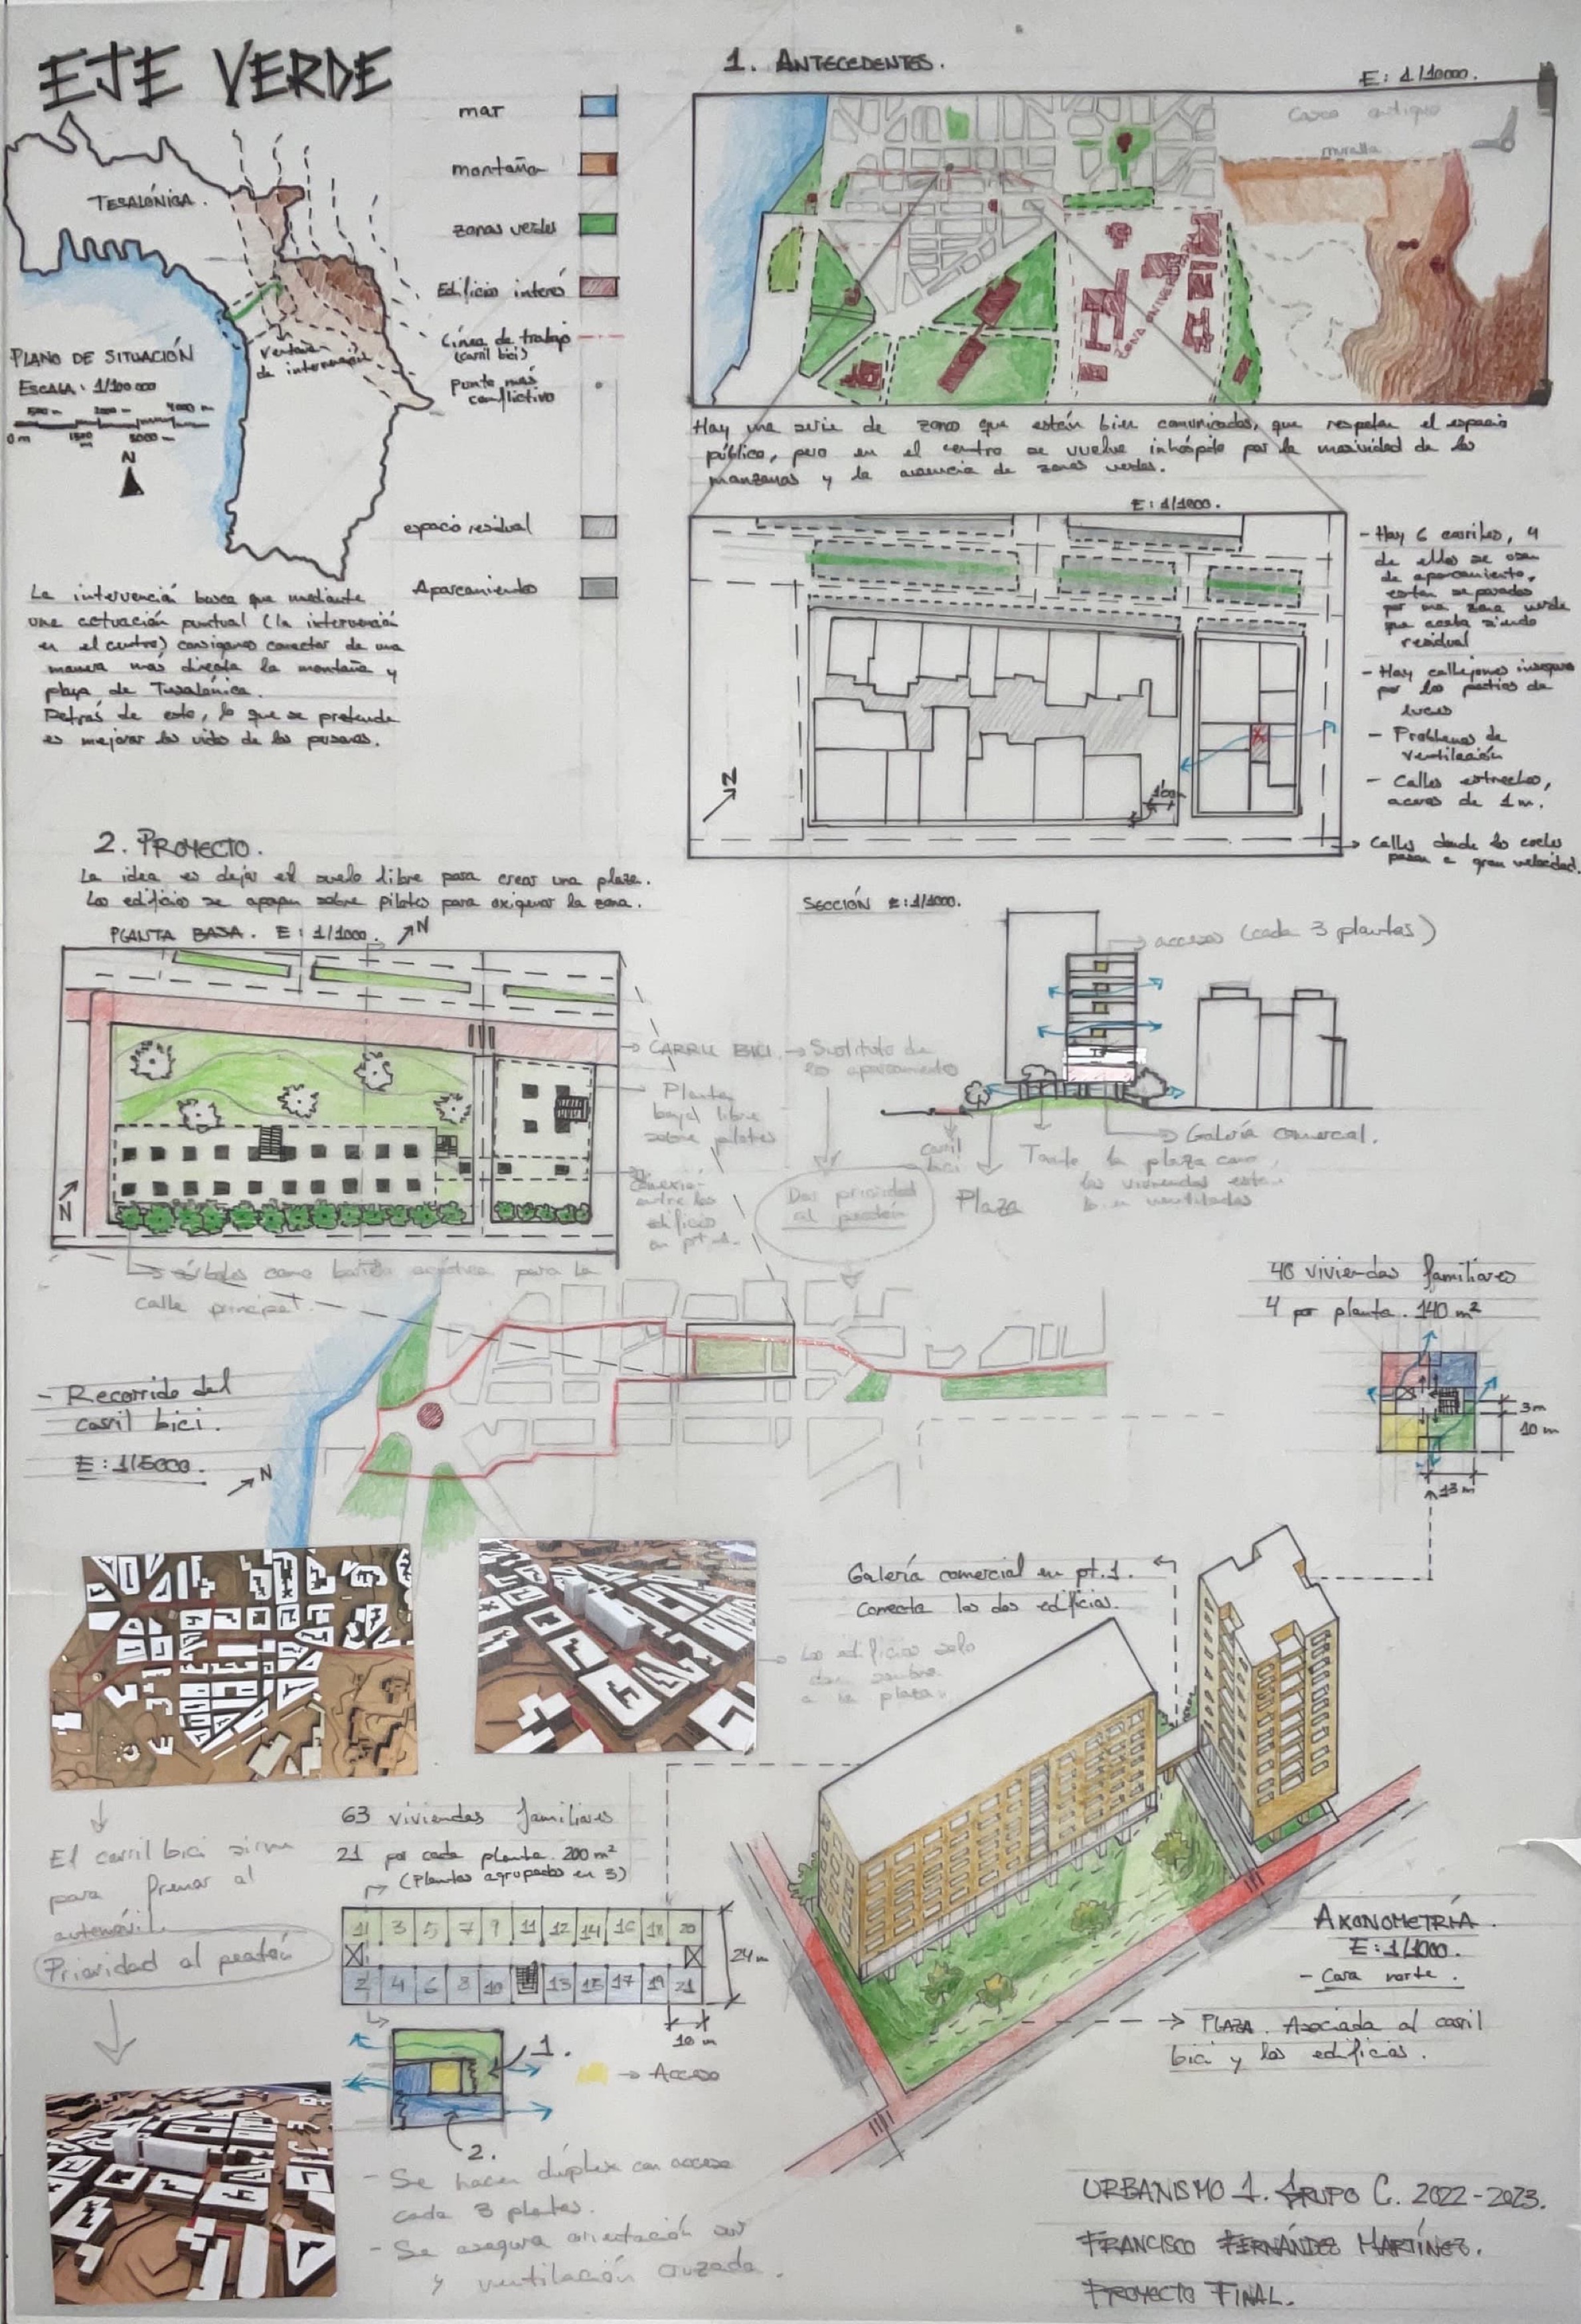 EJE VERDE
TESALÓNICA.
PLANO DE SITUACIÓN
ESCALA: 1/100 000
500 m 2000 m 4000 m
0 m 1500 m 3000 m
N
Ventana
de intervención
mar
montaña
zonas verdes
Edificio interés
Línea de trabajo
(carril bici)
punto más
conflictivo
espacio residual
Aparcamiento
La intervención busca que mediante
una actuación puntual (la intervención
en el centro) consigamos conectar de una
manera más directa la montaña y
playa de Tesalónica.
Detrás de esto, lo que se pretende
es mejorar las vidas de las personas.
1. ANTECEDENTES.
E: 1/10000.
Casco antiguo
muralla
ZONA UNIVERSITARIA
Hay una serie de zonas que están bien comunicadas, que respetan el espacio
público, pero en el centro se vuelve inhóspito por la masividad de las
manzanas y la ausencia de zonas verdes.
E: 1/1000.
N
10m
- Hay 6 carriles, 4
de ellos se usan
de aparcamiento,
están separados
por una zona verde
que acaba siendo
residual
- Hay callejones inseguros
por los patios de
luces
- Problemas de
ventilación
- Calles estrechas,
aceras de 1 m.
Calles donde los coches
pasan a gran velocidad.
2. PROYECTO.
La idea es dejar el suelo libre para crear una plaza.
Los edificios se apoyan sobre pilotes para oxigenar la zona.
PLANTA BASA. E: 1/1000. N
N
CARRIL BICI. → Sustituto de
los aparcamientos
Planta
baja libre
sobre pilotes
Conexión
entre los
edificios
en pt. 1.
Dar prioridad
al peatón
árboles como barrera acústica para la
calle principal.
SECCIÓN E: 1/1000.
accesos (cada 3 plantas)
Galería comercial.
carril
bici
Plaza
Tanto la plaza como
las viviendas están
bien ventiladas
- Recorrido del
carril bici.
E: 1/5000.
N
48 viviendas familiares
4 por planta. 140 m²
3m
10 m
13 m
Galería comercial en pt. 1.
Conecta los dos edificios.
Los edificios solo
dan sombra
a la plaza.
El carril bici sirve
para frenar al
automóvil.
Prioridad al peatón
63 viviendas familiares
21 por cada planta. 200 m²
(Plantas agrupadas en 3)
1 3 5 7 9 11 12 14 16 18 20
2 4 6 8 10 13 15 17 19 21
24 m
10 m
1.
→ Acceso
2.
- Se hacen dúplex con acceso
cada 3 plantas.
- Se asegura orientación sur
y ventilación cruzada.
AXONOMETRÍA.
E: 1/1000.
- Cara norte.
→ PLAZA. Asociada al carril
bici y los edificios.
URBANISMO 1. GRUPO C. 2022-2023.
FRANCISCO FERNÁNDEZ MARTÍNEZ.
PROYECTO FINAL.